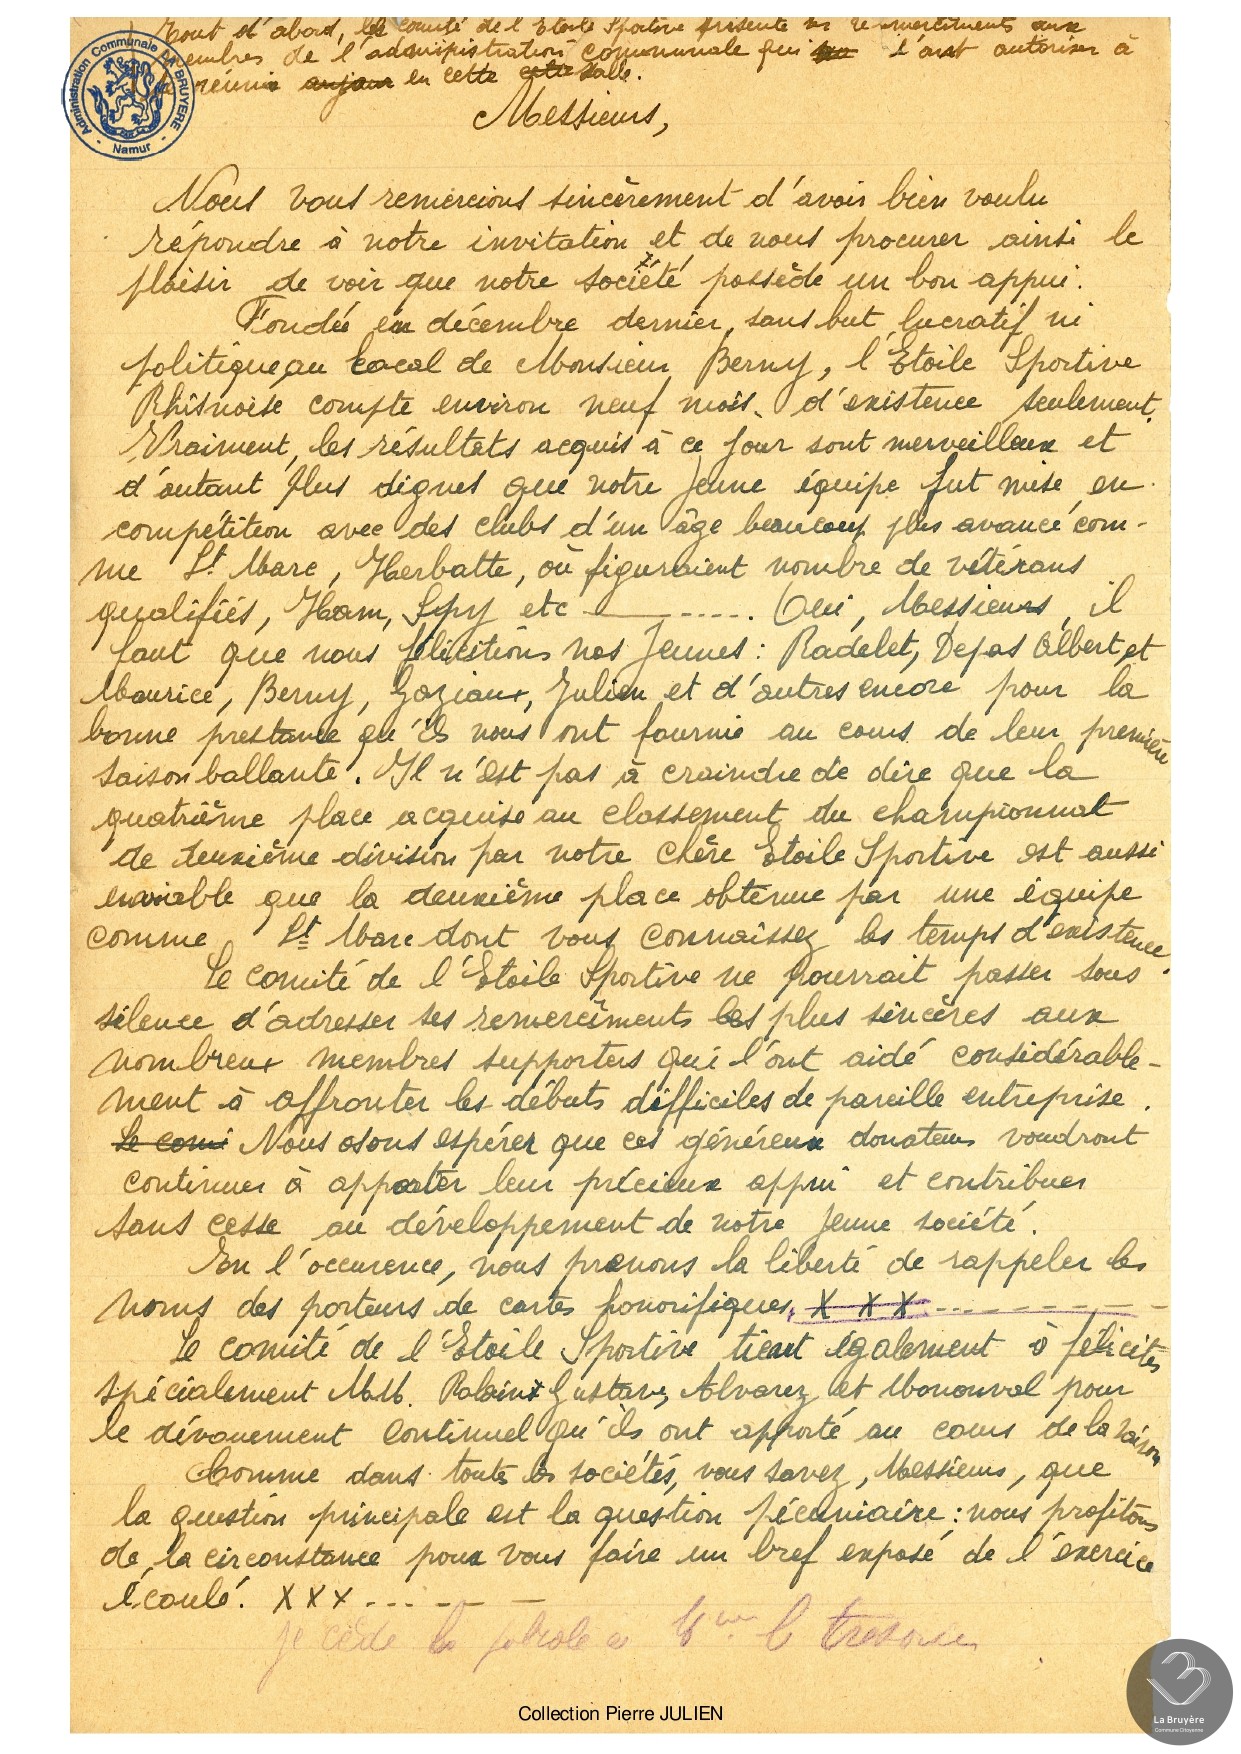 Tout d'abord, le comité de l'Etoile Sportive présente ses remerciments aux
membres de l'administration communale qui l'ont autoriser à
réunir en cette salle.
Administration Communale BRUYERE - Namur -
Messieurs,
Nous vous remercions sincèrement d'avoir bien voulu
répondre à notre invitation et de nous procurer ainsi le
plaisir de voir que notre société possède un bon appui.
Fondée en décembre dernier, sans but lucratif ni
politique, au local de Monsieur Berny, l'Etoile Sportive
Rhisnoise compte environ neuf mois d'existence seulement.
Vraiment, les résultats acquis à ce jour sont merveilleux et
d'autant plus dignes que notre jeune équipe fut mise en
compétition avec des clubs d'un âge beaucoup plus avancé com-
me St Marc, Herbatte, où figuraient nombre de vétérans
qualifiés, Ham, Spy etc ----. Oui, Messieurs, il
faut que nous félicitions nos Jeunes : Radelet, Defas Albert, et
Maurice, Berny, Goziaux, Julien et d'autres encore pour la
bonne prestance qu'ils nous ont fournie au cours de leur première
saison ballante. Il n'est pas à craindre de dire que la
quatrième place acquise au classement du championnat
de deuxième division par notre chère Etoile Sportive est aussi
enviable que la deuxième place obtenue par une équipe
comme St Marc dont vous connaissez les temps d'existence.
Le comité de l'Etoile Sportive ne pourrait passer sous
silence d'adresser ses remerciments les plus sincères aux
nombreux membres supporters qui l'ont aidé considérable-
ment à affronter les débuts difficiles de pareille entreprise.
Le comi Nous osons espérer que ces généreux donateurs voudront
continuer à apporter leur précieux appui et contribuer
sans cesse au développement de notre jeune société.
En l'occurence, nous prenons la liberté de rappeler les
noms des porteurs de cartes honorifiques, X X X --------
Le comité de l'Etoile Sportive tient également à féliciter
spécialement MM. Gustave, Alvarez et Monouvol pour
le dévouement continuel qu'ils ont apporté au cours de la saison
Comme dans toutes les sociétés, vous savez, Messieurs, que
la question principale est la question pécuniaire : nous profitons
de la circonstance pour vous faire un bref exposé de l'exercice
écoulé. X X X ------
je cède la parole à Mr le trésorier
La Bruyère
Commune Citoyenne
Collection Pierre JULIEN